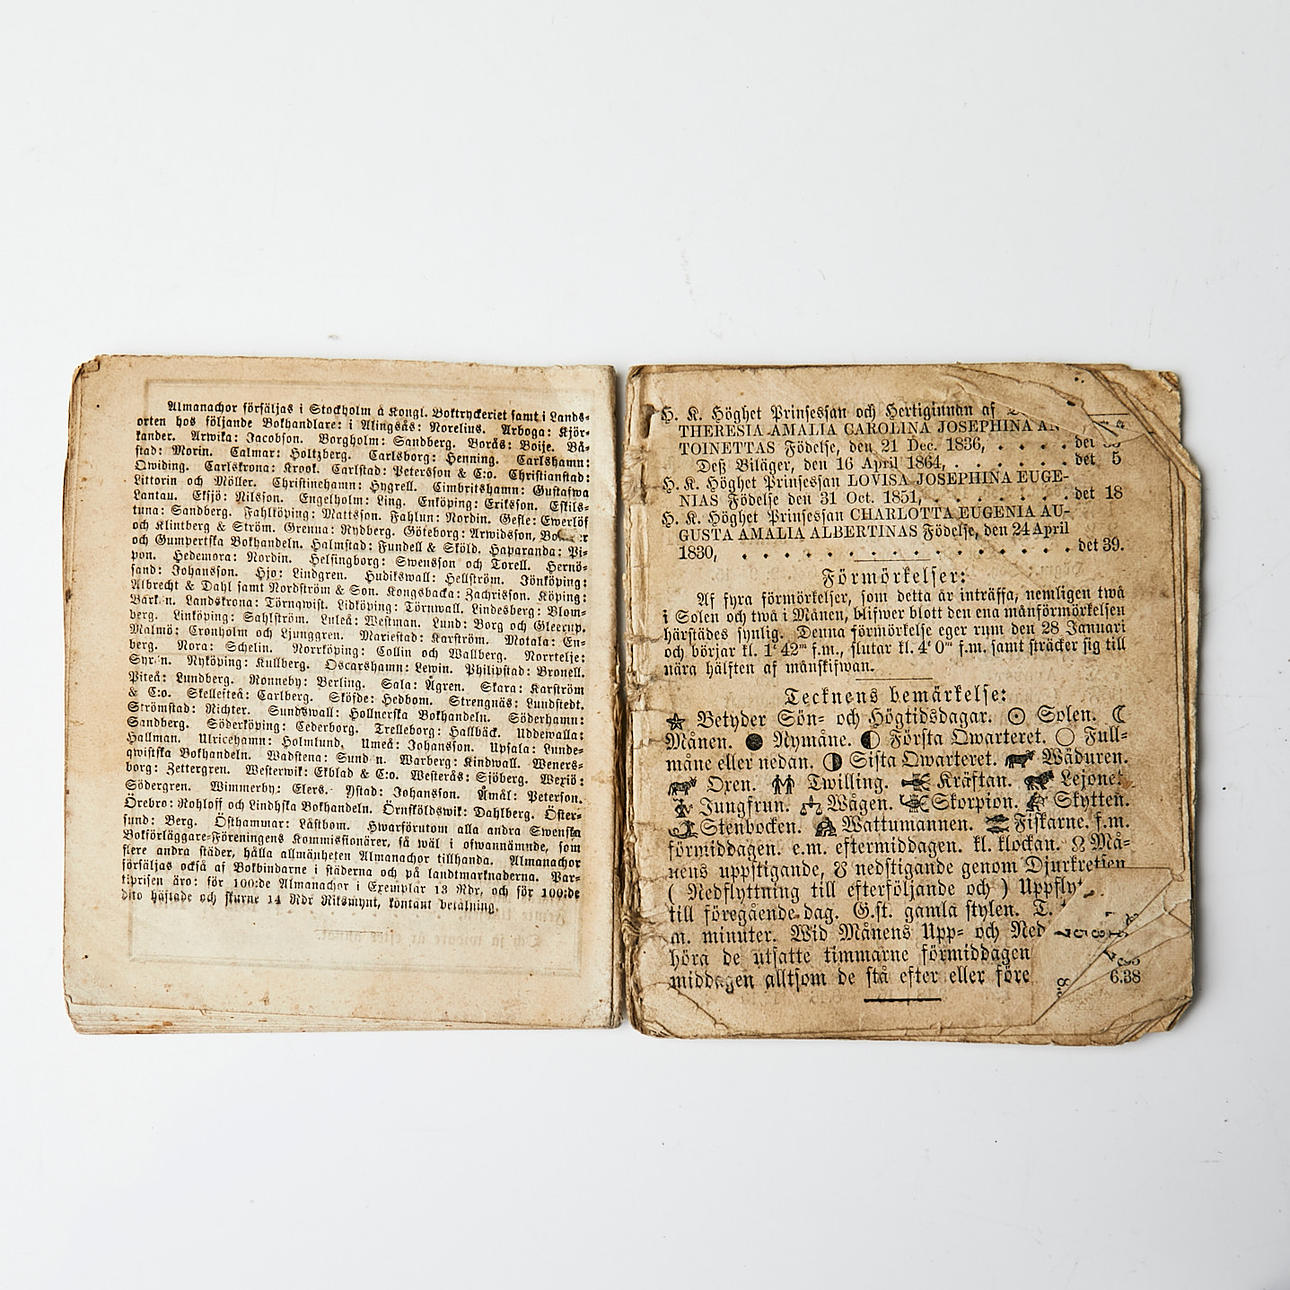 Almanachor försäljas i Stockholm å Kongl. Boktryckeriet samt i Lands-
orten hos följande Bokhandlare: i Alingsås: Norelius. Arboga: Kjör-
kander. Arwika: Jacobson. Borgholm: Sandberg. Borås: Boije. Bå-
stad: Morin. Calmar: Holtzberg. Carlsborg: Henning. Carlshamn:
Qwiding. Carlskrona: Krook. Carlstad: Petersson & C:o. Christianstad:
Littorin och Möller. Christinehamn: Hygrell. Cimbritshamn: Gustafwa
Lantau. Eksjö: Nilsson. Engelholm: Ling. Enköping: Erikson. Eskils-
tuna: Sandberg. Fahlköping: Mattsson. Fahlun: Nordin. Gefle: Ewerlöf
och Klintberg & Ström. Grenna: Rydberg. Göteborg: Arwidsson,
och Gumpertska Bokhandeln. Halmstad: Fundell & Sköld. Haparanda: Pi-
pon. Hedemora: Nordin. Helsingborg: Swensson och Torell. Hernö-
sand: Johansson. Hjo: Lindgren. Hudikswall: Hellström. Jönköping:
Albrecht & Dahl samt Nordström & Son. Kongsbacka: Zachrisson. Köping:
Landskrona: Törnqwist. Lidköping: Törnwall. Lindesberg: Blom-
berg. Linköping: Sahlström. Luleå: Westman. Lund: Borg och Gleerup.
Malmö: Cronholm och Ljunggren. Mariestad: Karström. Motala: En-
berg. Nora: Schelin. Norrköping: Collin och Wallberg. Norrtelje:
Nyköping: Kullberg. Oscarshamn: Lewin. Philipstad: Bronell.
Piteå: Lundberg. Ronneby: Berling. Sala: Ågren. Skara: Karström
& C:o. Skellefteå: Carlberg. Sköfde: Hedbom. Strengnäs: Lundstedt.
Strömstad: Richter. Sundswall: Hollnerska Bokhandeln. Söderhamn:
Sandberg. Söderköping: Cederborg. Trelleborg: Hallbäck. Uddewalla:
Hallman. Ulricehamn: Holmlund. Umeå: Johansson. Upsala: Lunde-
qwistska Bokhandeln. Wadstena: Warberg: Kindwall. Weners-
borg: Zettergren. Westerwik: Ekblad & C:o. Westerås: Sjöberg. Wexiö:
Södergren. Wimmerby: Elers. Ystad: Johnson. Åmål: Peterson.
Örebro: Rohloff och Lindhska Bokhandeln. Örnsköldswik: Dahlberg. Öster-
sund: Berg. Östhammar: Låstbom. Hwarförutom alla andra Swenska
Bokförläggare-Föreningens Kommissionärer, så wäl i ofwannämnde, som
flere andra städer, hålla allmänheten Almanachor tillhanda. Almanachor
försäljas också af Bokbindarne i städerna och på landtmarknaderna. Par-
tiprisen äro: för 100:de Almanachor i Exemplar 13 Rdr, och för 100:de
dito häftade och skurne 14 Rdr Riksmynt, kontant betalning.
H. K. Höghet Prinsessan och Hertiginnan af
THERESIA AMALIA CAROLINA JOSEPHINA AN
TOINETTAS Födelse, den 21 Dec. 1836, . . . . det
Dess Biläger, den 16 April 1864, . . . . . . . det 5
H. K. Höghet Prinsessan LOVISA JOSEPHINA EUGE-
NIAS Födelse den 31 Oct. 1851, . . . . . . . det 18
H. K. Höghet Prinsessan CHARLOTTA EUGENIA AU-
GUSTA AMALIA ALBERTINAS Födelse, den 24 April
1830, . . . . . . . . . . . . . . . det 39.
Förmörkelser:
Af fyra förmörkelser, som detta år inträffa, nemligen twå
i Solen och twå i Månen, blifwer blott den ena månförmörkelsen
härstädes synlig. Denna förmörkelse eger rum den 28 Januari
och börjar kl. 1ᵗ 42ᵐ f.m., slutar kl. 4ᵗ 0ᵐ f.m. samt sträcker sig till
nära hälften af månskifwan.
Tecknens bemärkelse:
☆ Betyder Sön- och Högtidsdagar. ☉ Solen. ☾
Månen. ● Nymåne. ◐ Första Qwarteret. ○ Full-
måne eller nedan. ◑ Sista Qwarteret. Wäduren.
Oxen. Twilling. Kräftan. Lejonet.
Jungfrun. Wågen. Skorpion. Skytten.
Stenbocken. Wattumannen. Fiskarne. f.m.
förmiddagen. e.m. eftermiddagen. kl. klockan. ☊ Må-
nens uppstigande, ☋ nedstigande genom Djurkretsen
( Nedflyttning till efterföljande och ) Uppfly
till föregående dag. G.st. gamla stylen. T.
m. minuter. Wid Månens Upp- och Ned
höra de utsatte timmarne förmiddagen
middagen alltsom de stå efter eller före
6.38